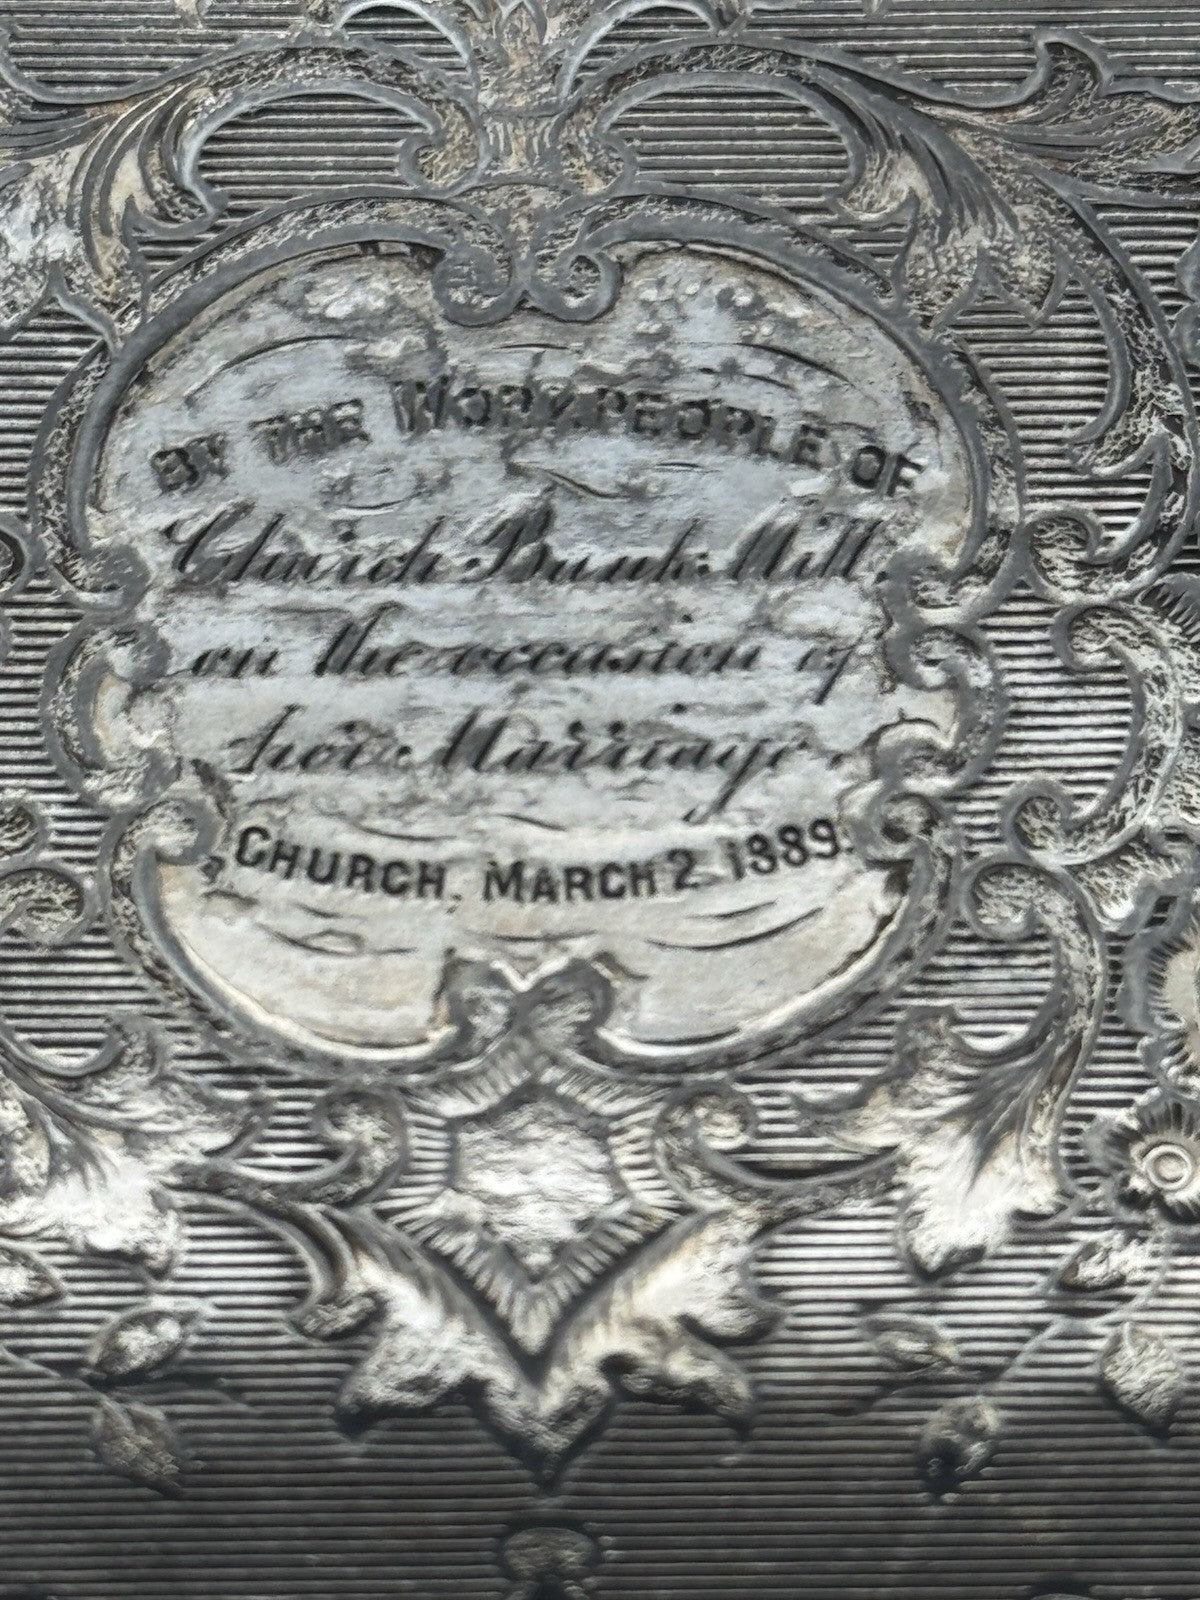 BY THE WORKPEOPLE OF
Church Bank Mill,
on the occasion of
her Marriage.
CHURCH, MARCH 2, 1889.